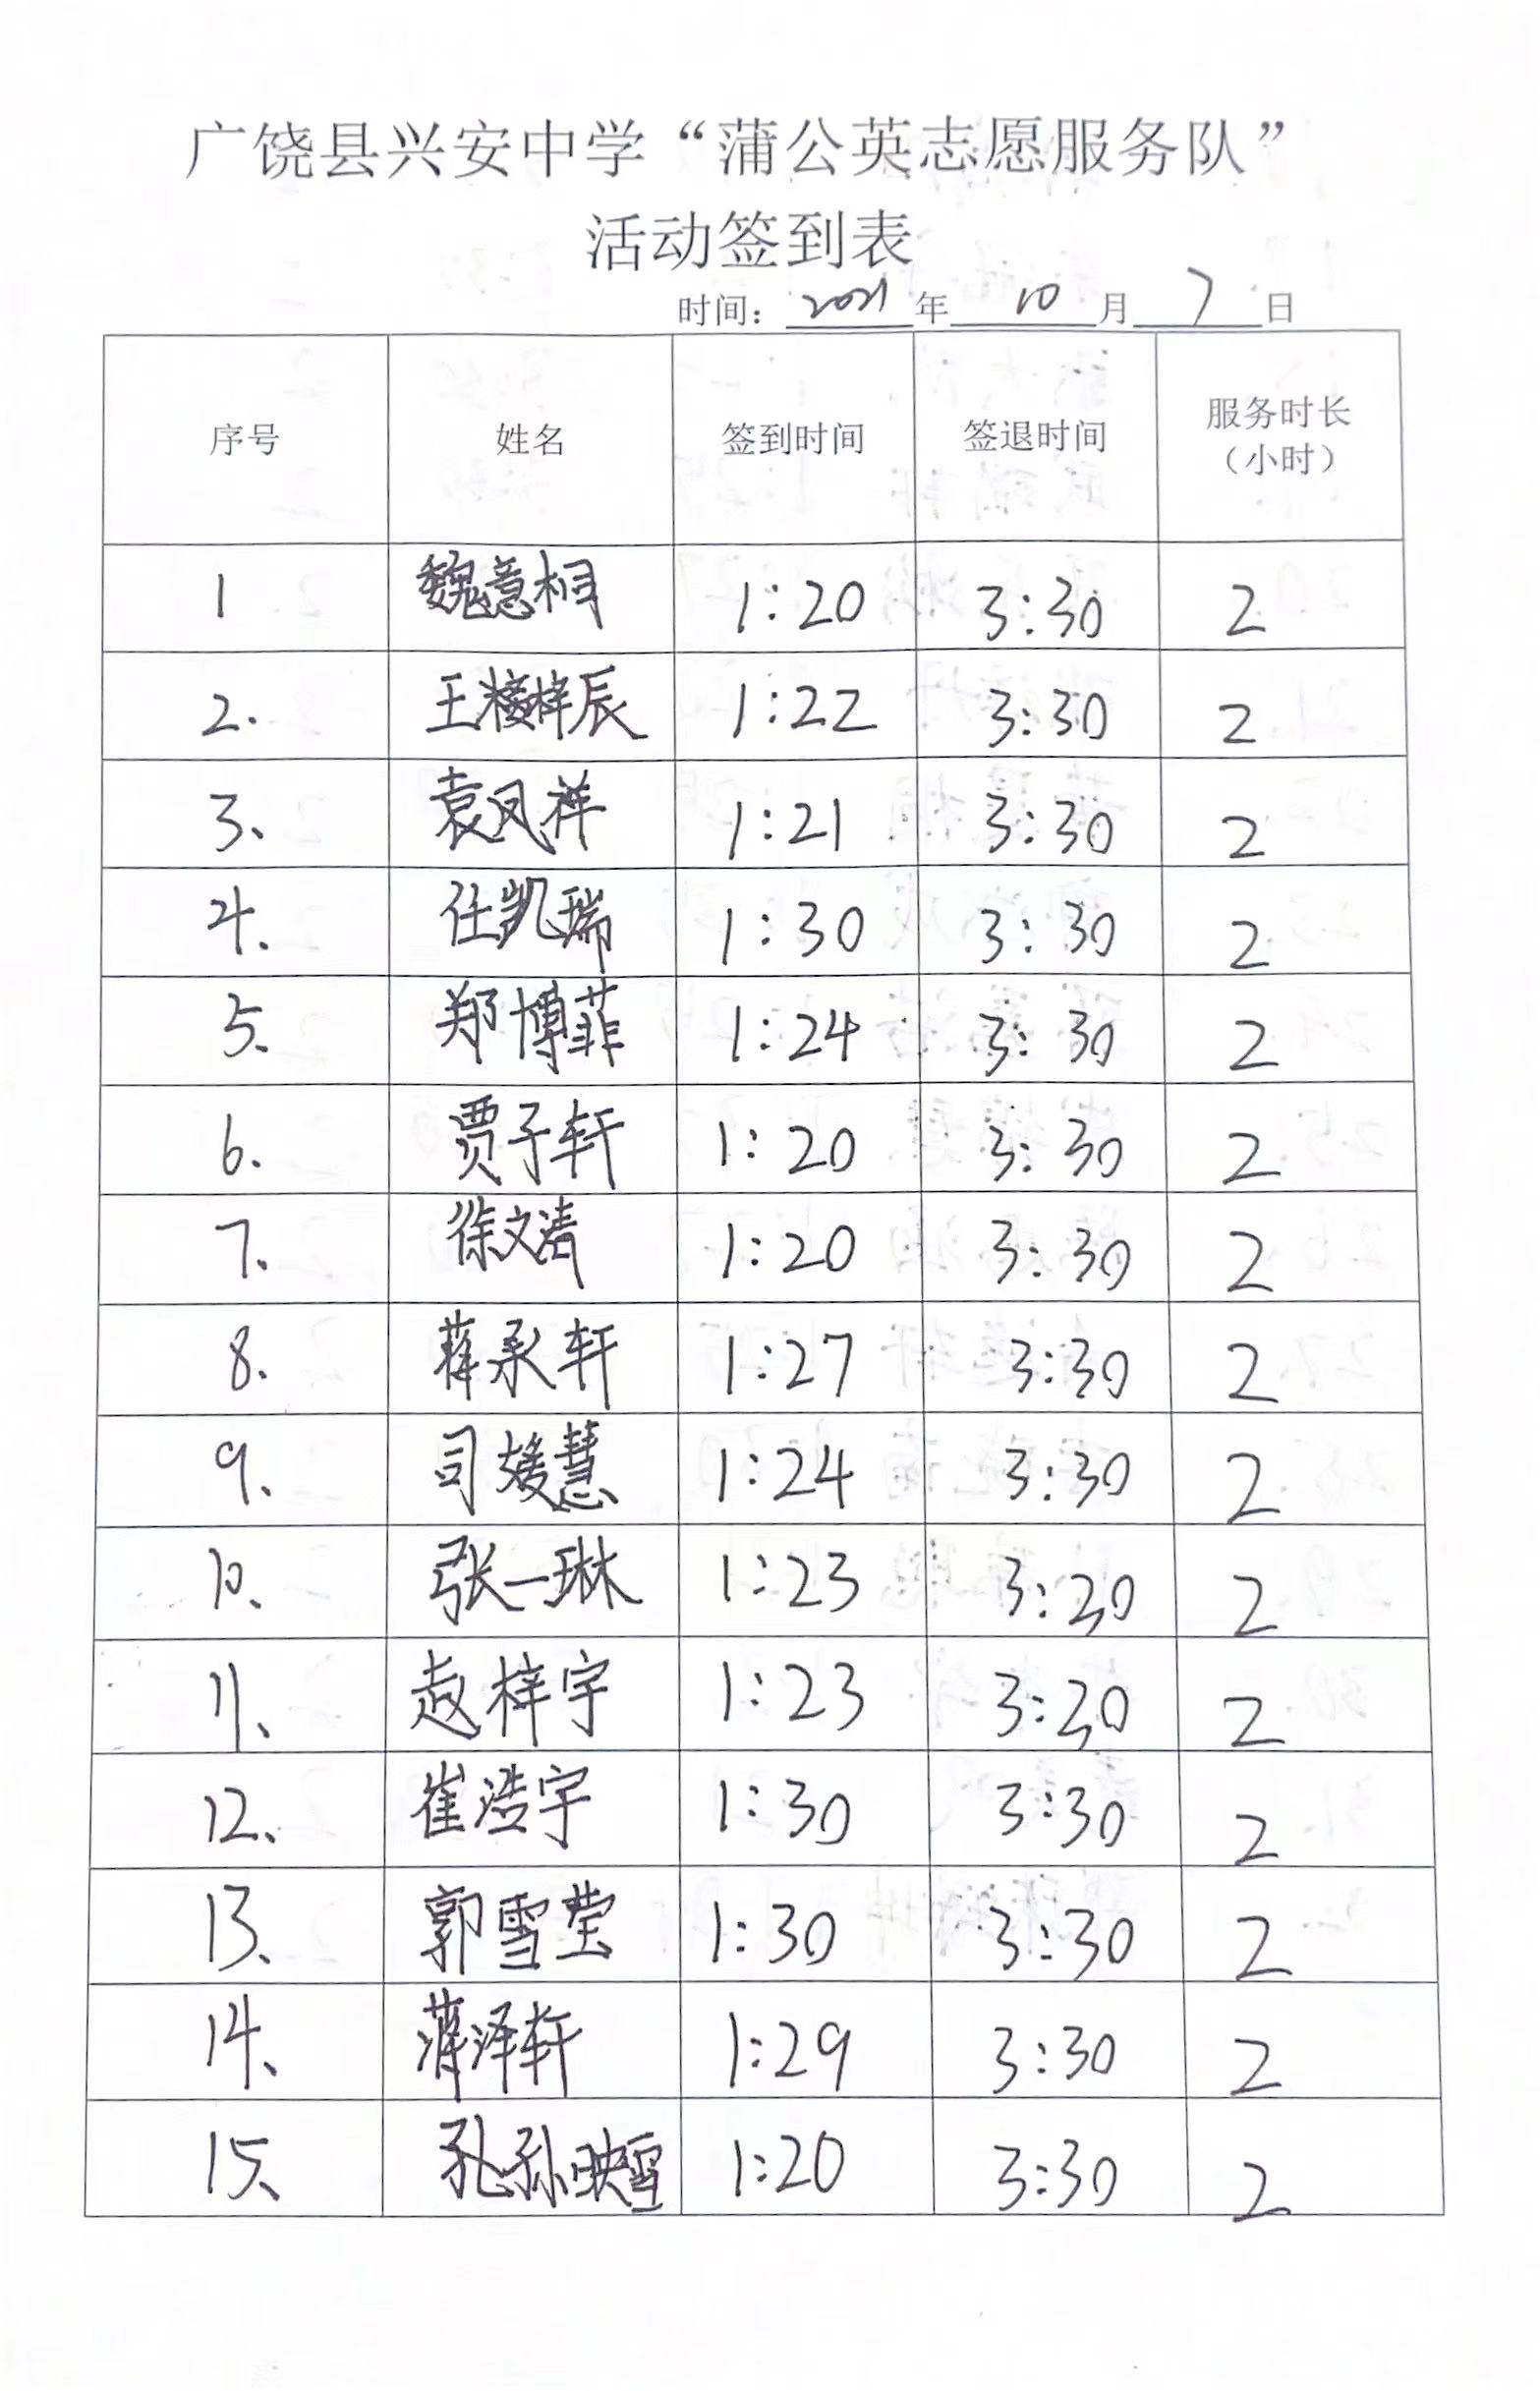 广饶县兴安中学“蒲公英志愿服务队”
活动签到表
时间：2021年10月7日
序号 姓名 签到时间 签退时间 服务时长（小时）
1 魏意桐 1:20 3:30 2
2. 王楼梓辰 1:22 3:30 2
3、 袁凤祥 1:21 3:30 2
4、 任凯瑞 1:30 3:30 2
5、 郑博菲 1:24 3:30 2
6、 贾子轩 1:20 3:30 2
7、 徐文清 1:20 3:30 2
8、 蒋永轩 1:27 3:30 2
9、 司媛慧 1:24 3:30 2
10、 张一琳 1:23 3:20 2
11、 赵梓宇 1:23 3:20 2
12、 崔浩宇 1:30 3:30 2
13、 郭雪莹 1:30 3:30 2
14、 蒋泽轩 1:29 3:30 2
15、 孔孙映雪 1:20 3:30 2